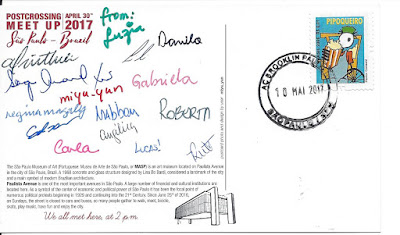 POSTCROSSING APRIL 30th
MEET UP 2017
São Paulo - Brazil
from:
Luzia
Danila
miyu-yun
Gabriela
regina magaly
Nubban
Roberta
Angélica
Carla
Lucas!
Ruth
The São Paulo Museum of Art (Portuguese: Museu de Arte de São Paulo, or MASP) is an art museum located on Paulista Avenue
in the city of São Paulo, Brazil. A 1968 concrete and glass structure designed by Lina Bo Bardi, considered a landmark of the city
and a main symbol of modern Brazilian architecture.
Paulista Avenue is one of the most important avenues in São Paulo. A large number of financial and cultural institutions are
located here. As a symbol of the center of economic and political power of São Paulo it has been the focal point of
numerous political protests beginning in 1929 and continuing into the 21st Century. Since June 28th of 2016,
on Sundays, the street is closed to cars and buses, so many people gather to walk, meet, bands,
skate, play music, have fun and enjoy the city.
We all met here, at 2 p.m.
PIPOQUEIRO
AC BROOKLIN PAULISTA
10 MAI 2017
SÃO PAULO/SPM